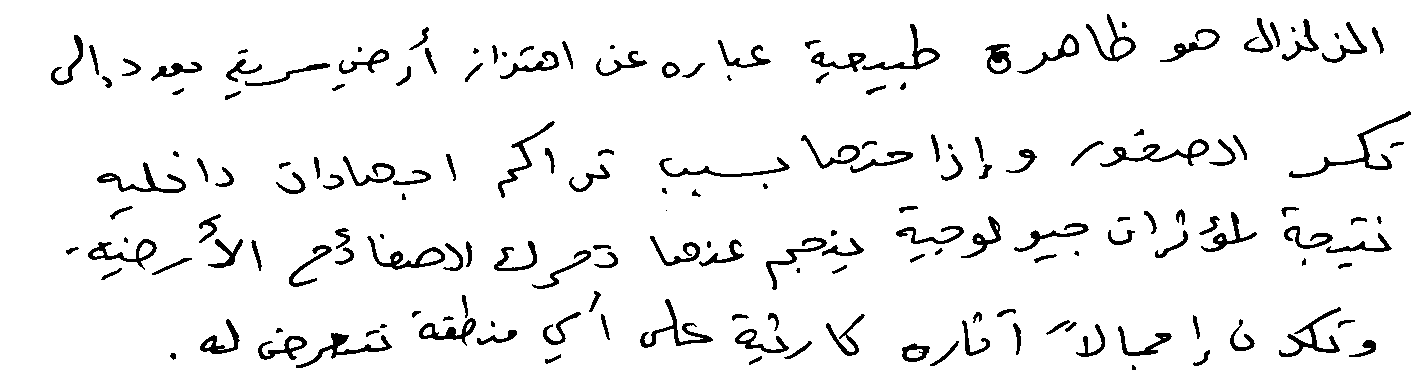 الزلزال هو ظاهرة طبيعية عباره عن اهتزاز أرضي سريع يعود إلى
تكسر الصخور وإزاحتها بسبب تراكم اجهادات داخليه
نتيجة لمؤثرات جيولوجية ينجم عنها تحرك الصفائح الأرضية.
وتكون إجمالاً آثاره كارثية على أي منطقة تتعرض له.